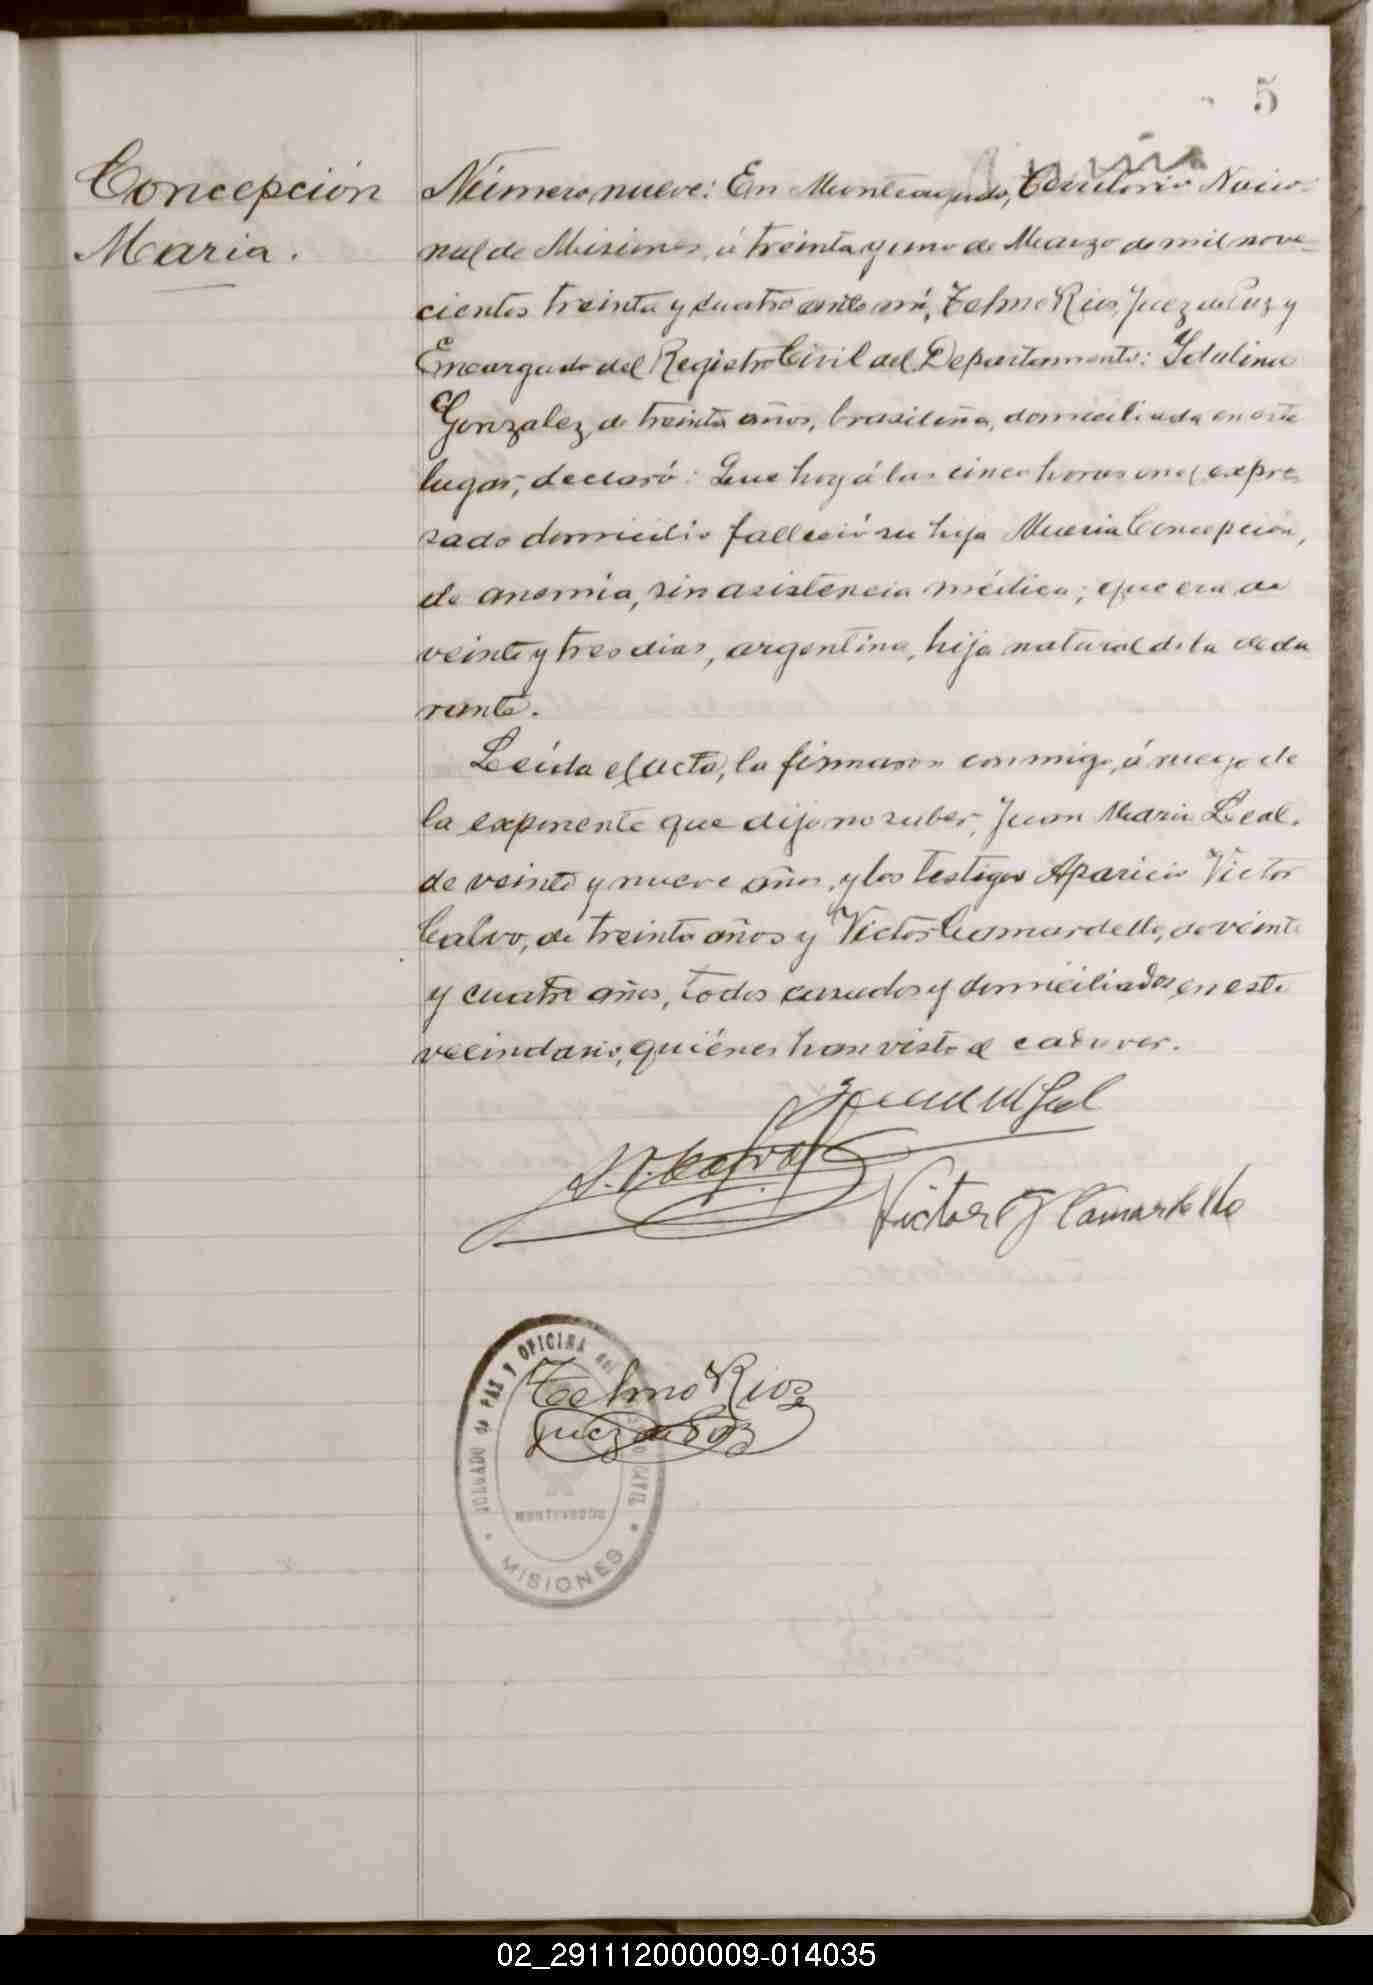 5
Concepción
Maria.
Número nueve: En Monteagudo, Territorio Nacio-
nal de Misiones, á treinta y uno de Marzo de mil nove-
cientos treinta y cuatro ante mí, Telmo Rios, Juez de Paz y
Encargado del Registro Civil del Departamento:
Gonzalez, de treinta años, brasileña, domiciliada en este
lugar, declaró: Que hoy á las cinco horas en el expre
sado domicilio falleció su hija Maria Concepción,
de anemia, sin asistencia médica; que era de
veinte y tres dias, argentina, hija natural de la decla
rante.
Leída el acta, la firmaron conmigo, á ruego de
la exponente que dijo no saber, Juan Maria Leal,
de veinte y nueve años, y los testigos Aparicio Victor
Calvo, de treinta años y Victor Camardello, de veinte
y cuatro años, todos casados y domiciliados en este
vecindario, quiénes han visto el cadaver.
Juan M Leal
A. V. Calvo
Victor J Camardello
JUZGADO de PAZ Y OFICINA del REGISTRO CIVIL
MONTEAGUDO
MISIONES
Telmo Rios
Juez de Paz
02_291112000009-014035